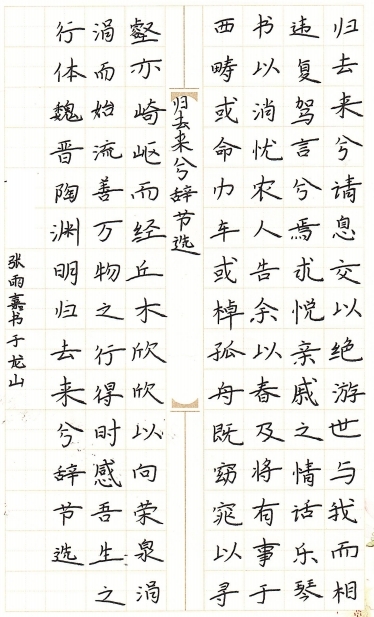 归去来兮请息交以绝游世与我而相
违复驾言兮焉求悦亲戚之情话乐琴
书以消忧农人告余以春及将有事于
西畴或命巾车或棹孤舟既窈窕以寻
归去来兮辞节选
壑亦崎岖而经丘木欣欣以向荣泉涓
涓而始流善万物之行得时感吾生之
行体魏晋陶渊明归去来兮辞节选
张雨嘉书于龙山